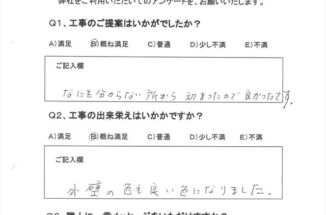 弊社をご利用いただいてのアンケートを、お願いいたします。
Q1、工事のご提案はいかがでしたか？
A)満足 B)概ね満足 C)普通 D)少し不満 E)不満
ご記入欄
なにも分からない所から初まったので良かったです。
Q2、工事の出来栄えはいかかですか？
A)満足 B)概ね満足 C)普通 D)少し不満 E)不満
ご記入欄
外壁の色も良い色になりました。